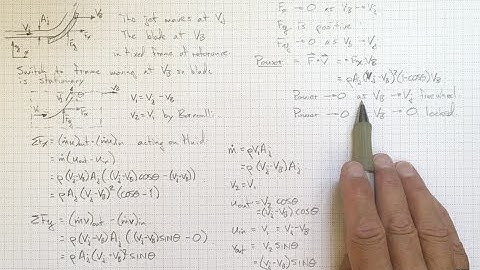 Vj Aj
VB
Fx
Fy
The jet moves at Vj
The blade at VB
in fixed frame of reference.
Switch to frame moving at VB so blade
is stationary
V1 = Vj - VB
V2 = V1 by Bernoulli.
θ
ΣFx = (ṁu)out - (ṁu)in acting on fluid
= ṁ(uout - uin)
= ρ(Vj-VB)Aj((Vj-VB)cosθ - (Vj-VB))
= ρAj(Vj-VB)²(cosθ-1)
ΣFy = (ṁv)out - (ṁv)in
= ρ(Vj-VB)Aj((Vj-VB)sinθ - 0)
= ρAj(Vj-VB)²sinθ
ṁ = ρV1Aj
= ρ(Vj-VB)Aj
V2 = V1
uout = V2 cosθ
= (Vj-VB)cosθ
uin = V1 = Vj-VB
vout = V2 sinθ
= (Vj-VB)sinθ
Fx → 0 as VB → Vj
Fy is positive
Fy → 0 as VB → Vj
Power = F·V = -FxVB
= ρAj(Vj-VB)²(1-cosθ)VB
Power → 0 as VB → Vj freewheel
Power → 0 VB → 0 locked